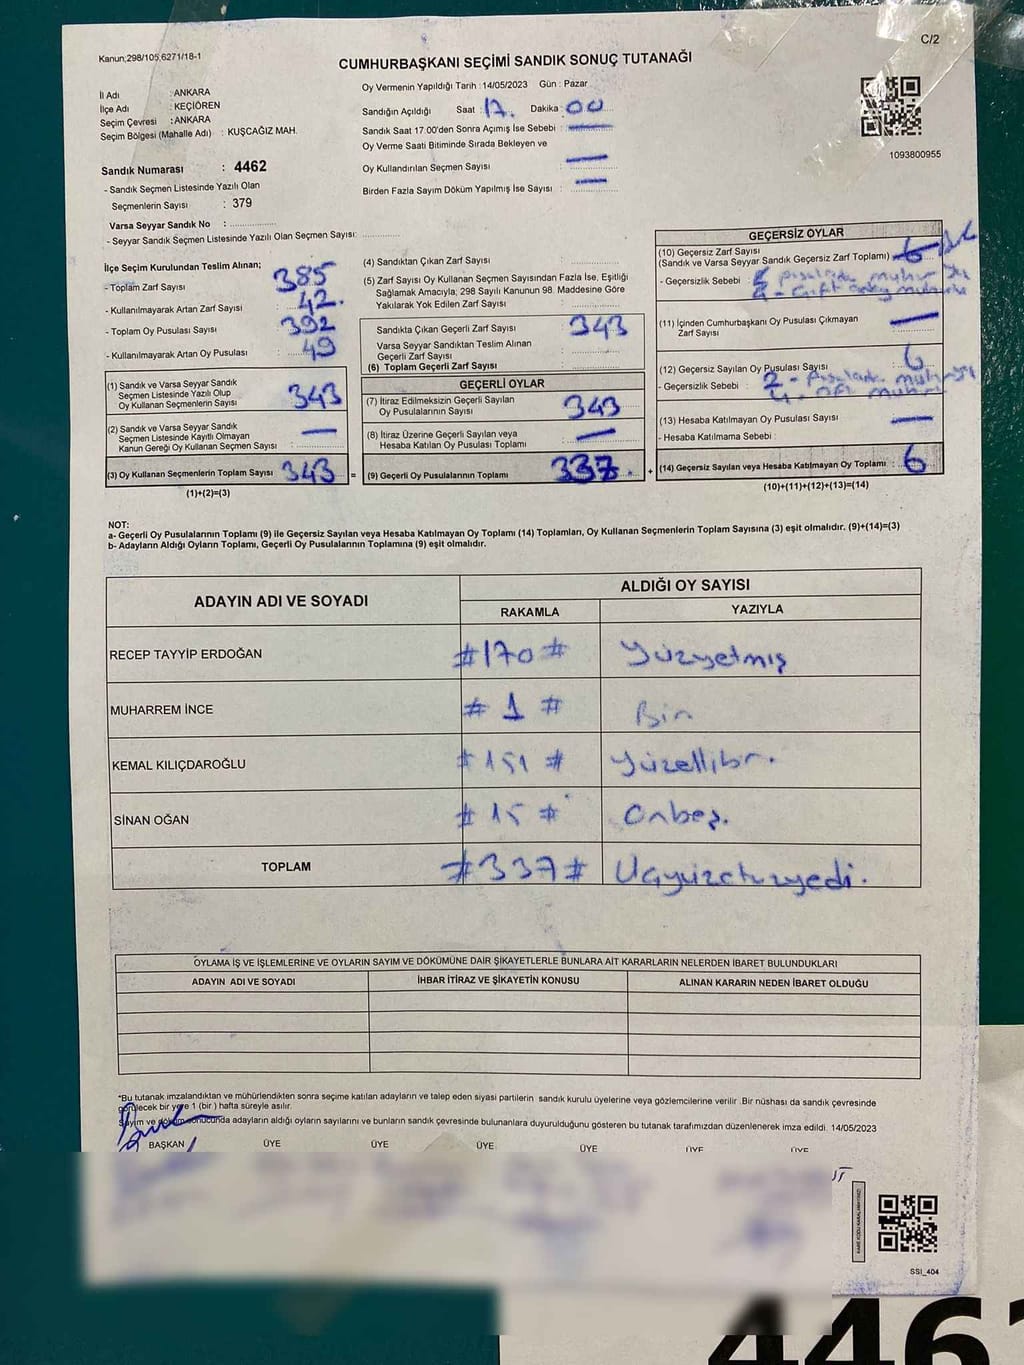 Kanun;298/105,6271/18-1
C/2
CUMHURBAŞKANI SEÇİMİ SANDIK SONUÇ TUTANAĞI
İl Adı : ANKARA
İlçe Adı : KEÇİÖREN
Seçim Çevresi : ANKARA
Seçim Bölgesi (Mahalle Adı) : KUŞCAĞIZ MAH.
Oy Vermenin Yapıldığı Tarih : 14/05/2023 Gün : Pazar
Sandığın Açıldığı Saat : 17. Dakika : 00
Sandık Saat 17.00'den Sonra Açımış İse Sebebi : —
Oy Verme Saati Bitiminde Sırada Bekleyen ve
Oy Kullandırılan Seçmen Sayısı : —
Birden Fazla Sayım Döküm Yapılmış İse Sayısı : —
1093800955
Sandık Numarası : 4462
- Sandık Seçmen Listesinde Yazılı Olan
Seçmenlerin Sayısı : 379
Varsa Seyyar Sandık No :
- Seyyar Sandık Seçmen Listesinde Yazılı Olan Seçmen Sayısı:
İlçe Seçim Kurulundan Teslim Alınan;
- Toplam Zarf Sayısı : 385
- Kullanılmayarak Artan Zarf Sayısı : 42.
- Toplam Oy Pusulası Sayısı : 392
- Kullanılmayarak Artan Oy Pusulası : 49
(1) Sandık ve Varsa Seyyar Sandık
Seçmen Listesinde Yazılı Olup
Oy Kullanan Seçmenlerin Sayısı : 343
(2) Sandık ve Varsa Seyyar Sandık
Seçmen Listesinde Kayıtlı Olmayan
Kanun Gereği Oy Kullanan Seçmen Sayısı : —
(3) Oy Kullanan Seçmenlerin Toplam Sayısı : 343 =
(1)+(2)=(3)
(4) Sandıktan Çıkan Zarf Sayısı :
(5) Zarf Sayısı Oy Kullanan Seçmen Sayısından Fazla İse, Eşitliği
Sağlamak Amacıyla; 298 Sayılı Kanunun 98. Maddesine Göre
Yakılarak Yok Edilen Zarf Sayısı :
Sandıkta Çıkan Geçerli Zarf Sayısı : 343
Varsa Seyyar Sandıktan Teslim Alınan
Geçerli Zarf Sayısı :
(6) Toplam Geçerli Zarf Sayısı :
GEÇERLİ OYLAR
(7) İtiraz Edilmeksizin Geçerli Sayılan
Oy Pusulalarının Sayısı : 343
(8) İtiraz Üzerine Geçerli Sayılan veya
Hesaba Katılan Oy Pusulası Toplamı : —
(9) Geçerli Oy Pusulalarının Toplamı : 337. +
GEÇERSİZ OYLAR
(10) Geçersiz Zarf Sayısı
(Sandık ve Varsa Seyyar Sandık Geçersiz Zarf Toplamı) : 6
- Geçersizlik Sebebi :
(11) İçinden Cumhurbaşkanı Oy Pusulası Çıkmayan
Zarf Sayısı : —
(12) Geçersiz Sayılan Oy Pusulası Sayısı : 6
- Geçersizlik Sebebi : 2 - Pusulada
(13) Hesaba Katılmayan Oy Pusulası Sayısı : —
- Hesaba Katılmama Sebebi :
(14) Geçersiz Sayılan veya Hesaba Katılmayan Oy Toplamı : 6
(10)+(11)+(12)+(13)=(14)
NOT:
a- Geçerli Oy Pusulalarının Toplamı (9) ile Geçersiz Sayılan veya Hesaba Katılmayan Oy Toplamı (14) Toplamları, Oy Kullanan Seçmenlerin Toplam Sayısına (3) eşit olmalıdır. (9)+(14)=(3)
b- Adayların Aldığı Oyların Toplamı, Geçerli Oy Pusulalarının Toplamına (9) eşit olmalıdır.
ADAYIN ADI VE SOYADI
ALDIĞI OY SAYISI
RAKAMLA YAZIYLA
RECEP TAYYİP ERDOĞAN #170# Yüzyetmiş
MUHARREM İNCE # 1 # Bir
KEMAL KILIÇDAROĞLU # 151 # Yüzellibr.
SİNAN OĞAN # 15 # Onbeş.
TOPLAM #337# Üçyüzotuzyedi.
OYLAMA İŞ VE İŞLEMLERİNE VE OYLARIN SAYIM VE DÖKÜMÜNE DAİR ŞİKAYETLERLE BUNLARA AİT KARARLARIN NELERDEN İBARET BULUNDUKLARI
ADAYIN ADI VE SOYADI İHBAR İTİRAZ VE ŞİKAYETİN KONUSU ALINAN KARARIN NEDEN İBARET OLDUĞU
*Bu tutanak imzalandıktan ve mühürlendikten sonra seçime katılan adayların ve talep eden siyasi partilerin sandık kurulu üyelerine veya gözlemcilerine verilir .Bir nüshası da sandık çevresinde
görülecek bir yere 1 (bir ) hafta süreyle asılır.
Sayım ve döküm sonucunda adayların aldığı oyların sayılarını ve bunların sandık çevresinde bulunanlara duyurulduğunu gösteren bu tutanak tarafımızdan düzenlenerek imza edildi. 14/05/2023
BAŞKAN ÜYE ÜYE ÜYE ÜYE ÜYE ÜYE
SSI_404